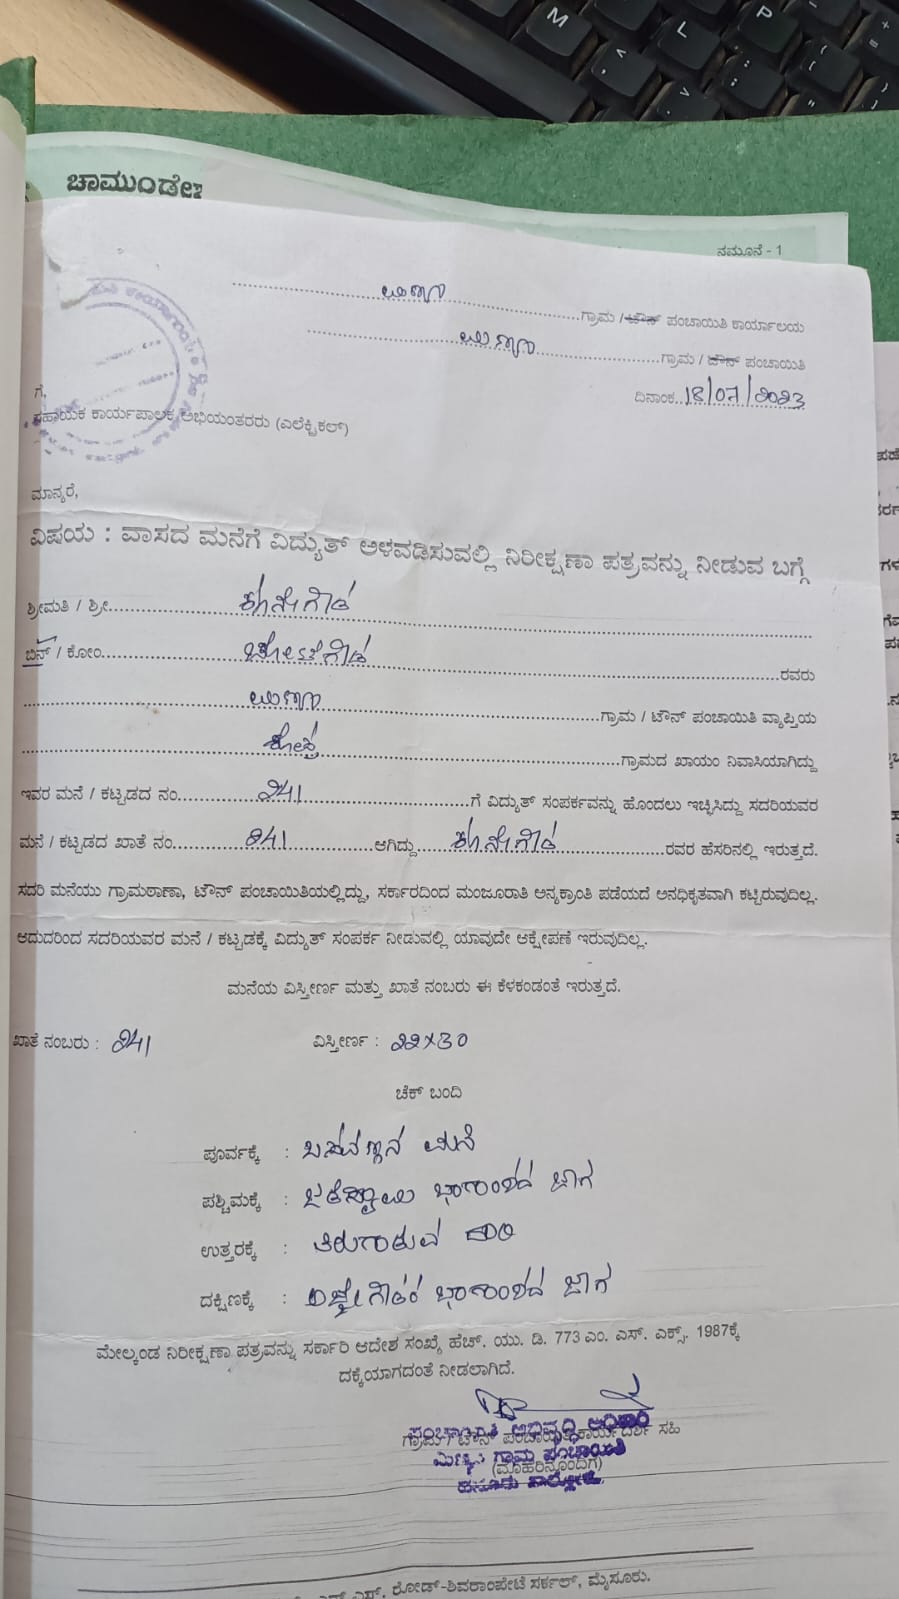 ಚಾಮುಂಡೇ
ನಮೂನೆ - 1
ಗ್ರಾಮ / ಟೌನ್ ಪಂಚಾಯಿತಿ ಕಾರ್ಯಾಲಯ
ಗ್ರಾಮ / ಟೌನ್ ಪಂಚಾಯಿತಿ
ದಿನಾಂಕ..18/07/2023
ಗೆ,
ಸಹಾಯಕ ಕಾರ್ಯಪಾಲಕ ಅಭಿಯಂತರರು (ಎಲೆಕ್ಟ್ರಿಕಲ್)
ಮಾನ್ಯರೆ,
ವಿಷಯ : ವಾಸದ ಮನೆಗೆ ವಿದ್ಯುತ್ ಅಳವಡಿಸುವಲ್ಲಿ ನಿರೀಕ್ಷಣಾ ಪತ್ರವನ್ನು ನೀಡುವ ಬಗ್ಗೆ
ಶ್ರೀಮತಿ / ಶ್ರೀ
ಬಿನ್ / ಕೋಂ ರವರು
ಗ್ರಾಮ / ಟೌನ್ ಪಂಚಾಯಿತಿ ವ್ಯಾಪ್ತಿಯ
ಗ್ರಾಮದ ಖಾಯಂ ನಿವಾಸಿಯಾಗಿದ್ದು
ಇವರ ಮನೆ / ಕಟ್ಟಡದ ನಂ. 241 ಗೆ ವಿದ್ಯುತ್ ಸಂಪರ್ಕವನ್ನು ಹೊಂದಲು ಇಚ್ಛಿಸಿದ್ದು ಸದರಿಯವರ
ಮನೆ / ಕಟ್ಟಡದ ಖಾತೆ ನಂ. 241 ಆಗಿದ್ದು ರವರ ಹೆಸರಿನಲ್ಲಿ ಇರುತ್ತದೆ.
ಸದರಿ ಮನೆಯು ಗ್ರಾಮಠಾಣಾ, ಟೌನ್ ಪಂಚಾಯಿತಿಯಲ್ಲಿದ್ದು, ಸರ್ಕಾರದಿಂದ ಮಂಜೂರಾತಿ ಅನ್ಯಕ್ರಾಂತಿ ಪಡೆಯದೆ ಅನಧಿಕೃತವಾಗಿ ಕಟ್ಟಿರುವುದಿಲ್ಲ.
ಆದುದರಿಂದ ಸದರಿಯವರ ಮನೆ / ಕಟ್ಟಡಕ್ಕೆ ವಿದ್ಯುತ್ ಸಂಪರ್ಕ ನೀಡುವಲ್ಲಿ ಯಾವುದೇ ಆಕ್ಷೇಪಣೆ ಇರುವುದಿಲ್ಲ.
ಮನೆಯ ವಿಸ್ತೀರ್ಣ ಮತ್ತು ಖಾತೆ ನಂಬರು ಈ ಕೆಳಕಂಡಂತೆ ಇರುತ್ತದೆ.
ಖಾತೆ ನಂಬರು : 241 ವಿಸ್ತೀರ್ಣ : 22x30
ಚೆಕ್ ಬಂದಿ
ಪೂರ್ವಕ್ಕೆ : ಬಸವಣ್ಣನ ಮನೆ
ಪಶ್ಚಿಮಕ್ಕೆ : ಜಾಗ
ಉತ್ತರಕ್ಕೆ : ತಿರುಗಾಡುವ ದಾರಿ
ದಕ್ಷಿಣಕ್ಕೆ : ಜಾಗ
ಮೇಲ್ಕಂಡ ನಿರೀಕ್ಷಣಾ ಪತ್ರವನ್ನು ಸರ್ಕಾರಿ ಆದೇಶ ಸಂಖ್ಯೆ ಹೆಚ್. ಯು. ಡಿ. 773 ಎಂ. ಎಸ್. ಎಕ್ಸ್. 1987ಕ್ಕೆ
ದಕ್ಕೆಯಾಗದಂತೆ ನೀಡಲಾಗಿದೆ.
ಪಂಚಾಯಿತಿ ಅಭಿವೃದ್ಧಿ ಅಧಿಕಾರಿ
ಗ್ರಾಮ / ಟೌನ್ ಪಂಚಾಯಿತಿ ಕಾರ್ಯದರ್ಶಿ ಸಹಿ
ಗ್ರಾಮ ಪಂಚಾಯಿತಿ
(ಮೊಹರಿನೊಂದಿಗೆ)
ರೋಡ್-ಶಿವರಾಂಪೇಟೆ ಸರ್ಕಲ್, ಮೈಸೂರು.